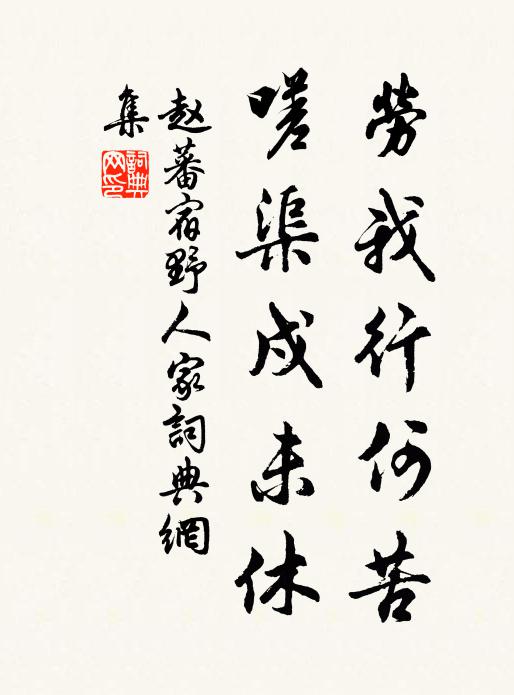 勞我行何苦
嗟渠戍未休
赵蕃宿野人家詞典網
集
詞典
网印